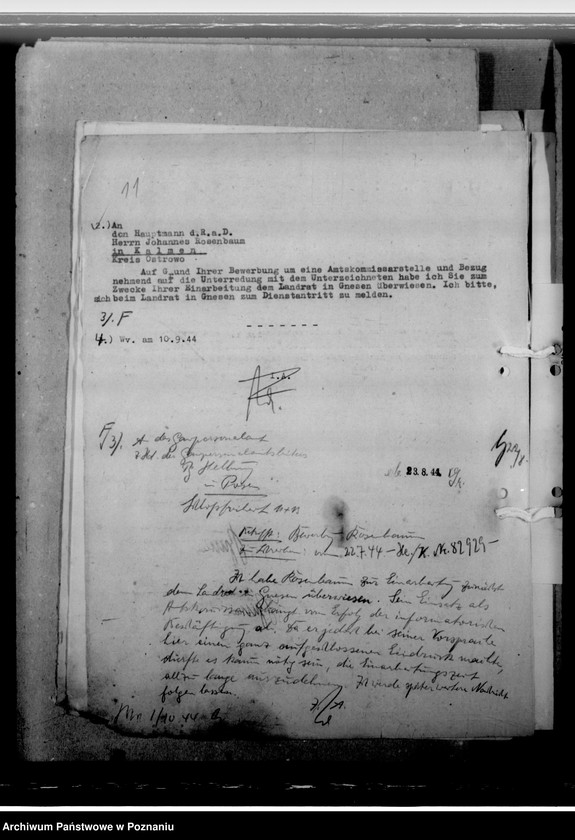 11
2.) An
den Hauptmann d.R.a.D.
Herrn Johannes Rosenbaum
in Kalmen
Kreis Ostrowo
Auf G und Ihrer Bewerbung um eine Amtskommissarstelle und Bezug
nehmend auf die Unterredung mit dem Unterzeichneten habe ich Sie zum
Zwecke Ihrer Einarbeitung dem Landrat in Gnesen überwiesen. Ich bitte,
sich beim Landrat in Gnesen zum Dienstantritt zu melden.
3/. F
-------
4.) Wv. am 10.9.44
I.A.
F 3/. An das Gaupersonalamt
z.Hd. des Gaupersonalamtsleiters
Pg
in Posen
23.8.44
Schlossfreiheit
Betrifft: Bewerber Rosenbaum
vom 22.7.44 - K. Nr. 82929-
Ich habe Rosenbaum zur Einarbeitung zunächst
dem Landrat in Gnesen überwiesen. Sein Einsatz als
hängt vom Erfolg der informatorischen
Beschäftigung ab. Da er jedoch bei seiner Vorsprache
hier einen ganz aufgeschlossenen Eindruck machte,
dürfte es kaum nötig sein, die Einarbeitungszeit
allzu lange auszudehnen. Ich werde später weitere Nachricht
folgen lassen.
1/10 44
Archiwum Państwowe w Poznaniu